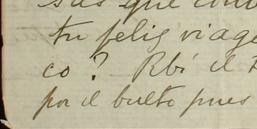 sas que com
tu feliz viage
co? Rbí el
por el bulto pues